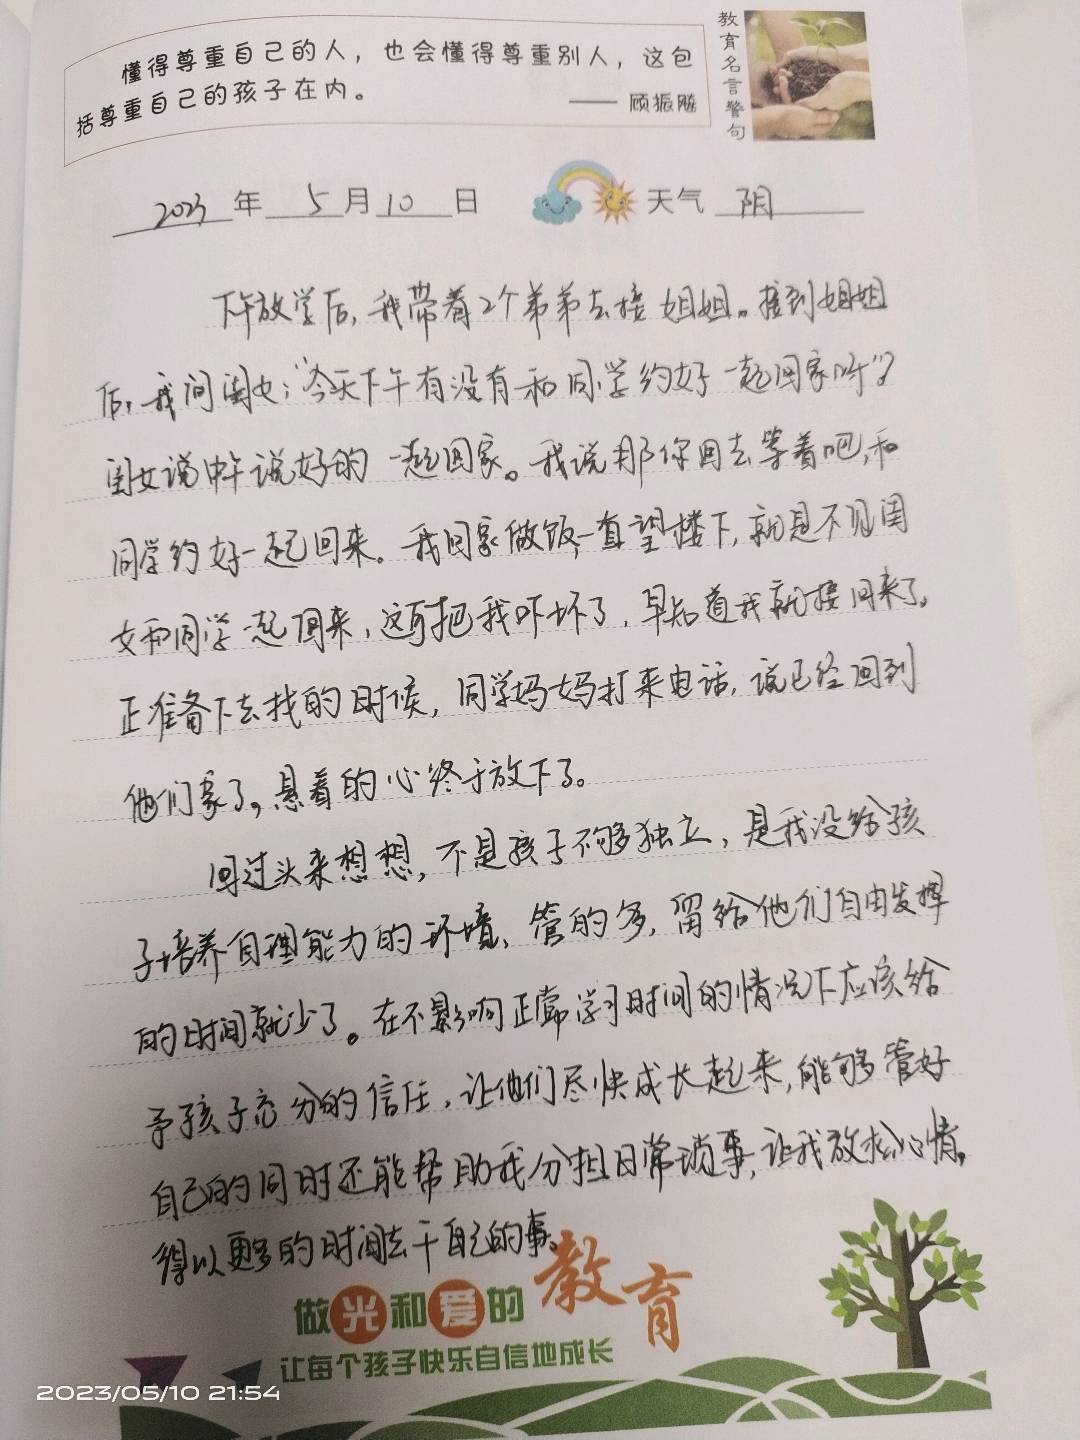 懂得尊重自己的人，也会懂得尊重别人，这包
括尊重自己的孩子在内。
—— 顾振飚
教育名言警句
2023年 5月10日 天气 阴
下午放学后，我带着2个弟弟去接姐姐。接到姐姐
后，我问闺女：“今天下午有没有和同学约好一起回家呀”？
闺女说中午说好的一起回家。我说那你回去等着吧，和
同学约好一起回来。我回家做饭，一直望楼下，就是不见闺
女和同学一起回来，这可把我吓坏了，早知道我就接回来了。
正准备下去找的时候，同学妈妈打来电话，说已经回到
他们家了。悬着的心终于放下了。
回过头来想想，不是孩子不够独立，是我没给孩
子培养自理能力的环境、管的多，留给他们自由发挥
的时间就少了。在不影响正常学习时间的情况下应该给
予孩子充分的信任，让他们尽快成长起来，能够管好
自己的同时还能帮助我分担日常琐事，让我放松心情。
得以更多的时间去干自己的事。
做光和爱的教育
让每个孩子快乐自信地成长
2023/05/10 21:54